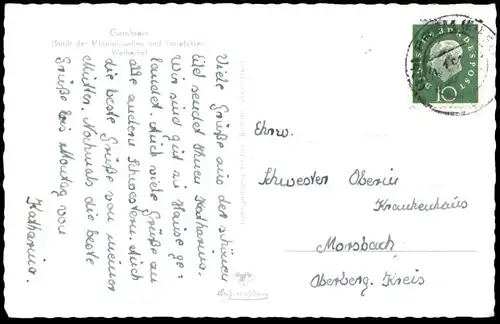 Gerolstein
(Stadt der Mineralquellen und Petrefakten)
Viele Grüße aus der schönen
Eifel sendet Ihnen Katharina.
Wir sind gut zu Hause ge-
landet. Auch viele Grüße an
alle andern Schwestern. Auch
die beste Grüße von meiner
Mutter. Nochmals die beste
Grüße bis Montag von
Katharina.
DEUTSCHE BUNDESPOST
10
Ehrw.
Schwester Oberin
Krankenhaus
Morsbach
Oberberg. Kreis